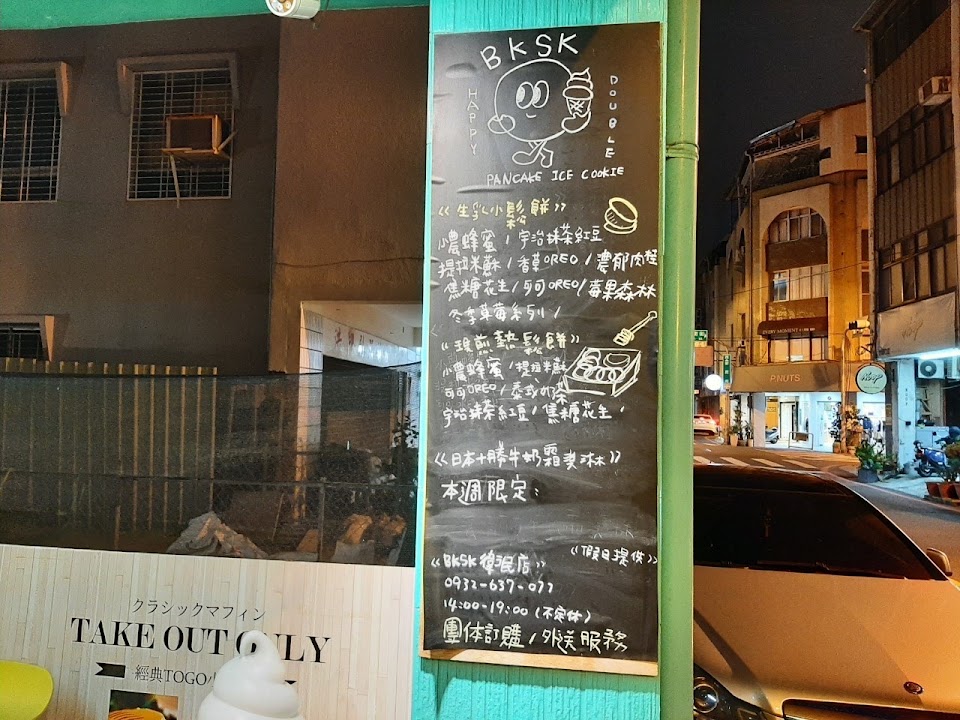 BKSK
HAPPY
DOUBLE
PANCAKE ICE COOKIE
《生乳小鬆餅》
小農蜂蜜/宇治抹茶紅豆
提拉米蘇/香草OREO/濃郁肉桂
焦糖花生/可可OREO/莓果森林
冬季草莓系列/
《現煎熱鬆餅》
小農蜂蜜/提拉米蘇
可可OREO/泰式奶茶
宇治抹茶紅豆/焦糖花生/
《日本十勝牛奶霜淇淋》
本週限定:
《假日提供》
《BKSK 店》
0932-637-077
14:00-19:00(不定休)
團体訂購/外送服務
クラシックマフィン
TAKE OUT ONLY
經典TOGO
P.NUTS